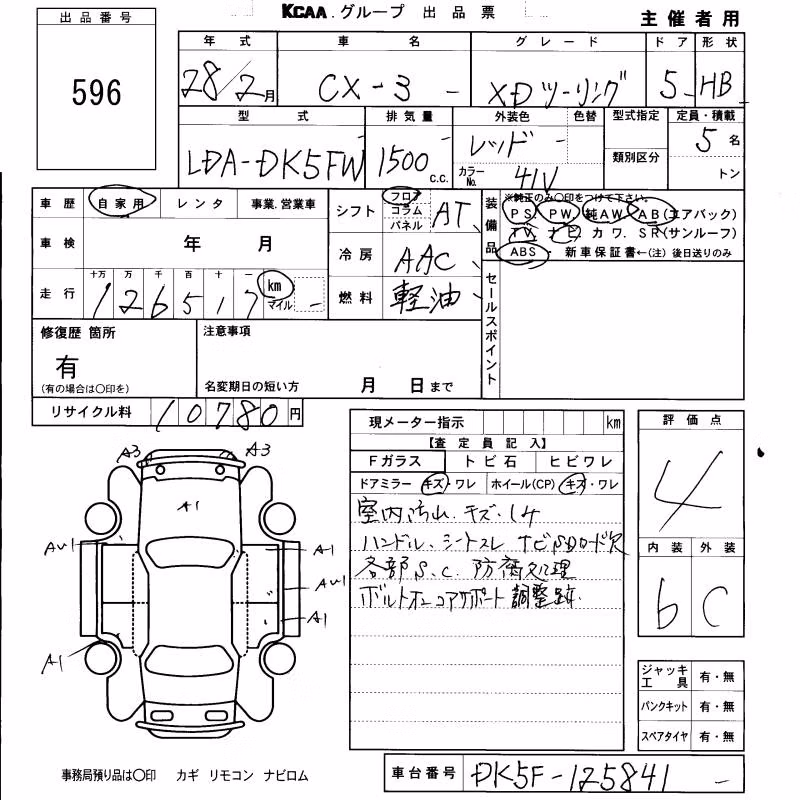 KCAA.グループ 出品票
主催者用
出品番号
596
年式 車名 グレード ドア 形状
28/2月 CX-3 XDツーリング 5 HB
型式 排気量 外装色 色替 型式指定 定員・積載
LDA-DK5FW 1500 c.c. レッド 類別区分 5名
カラーNo. 41V トン
車歴 自家用 レンタ 事業.営業車
シフト フロア コラム パネル AT
装備品 ※純正のみ〇印をつけて下さい。
PS PW 純AW AB(エアバック)
TV ナビ カワ. SR(サンルーフ)
ABS・新車保証書←(注)後日送りのみ
車検 年 月
冷房 AAC
十万 万 千 百 十 一
走行 126517 km マイル
燃料 軽油
セールスポイント
修復歴 箇所
有
(有の場合は〇印を)
注意事項
名変期日の短い方 月 日まで
リサイクル料 10780円
現メーター指示 km
【査定員記入】
Fガラス トビ石 ヒビワレ
ドアミラー キズ・ワレ ホイール(CP) キズ・ワレ
室内汚れ.キズ.シケ
ハンドル、シートスレ ナビSDロード欠
各部S.C. 防腐処理
調整跡
評価点
4
内装 外装
b C
A3 A3
A1
AU1 A1
AU1
A1
A1
ジャッキ工具 有・無
パンクキット 有・無
スペアタイヤ 有・無
事務局預り品は〇印 カギ リモコン ナビロム
車台番号 DK5F-125841